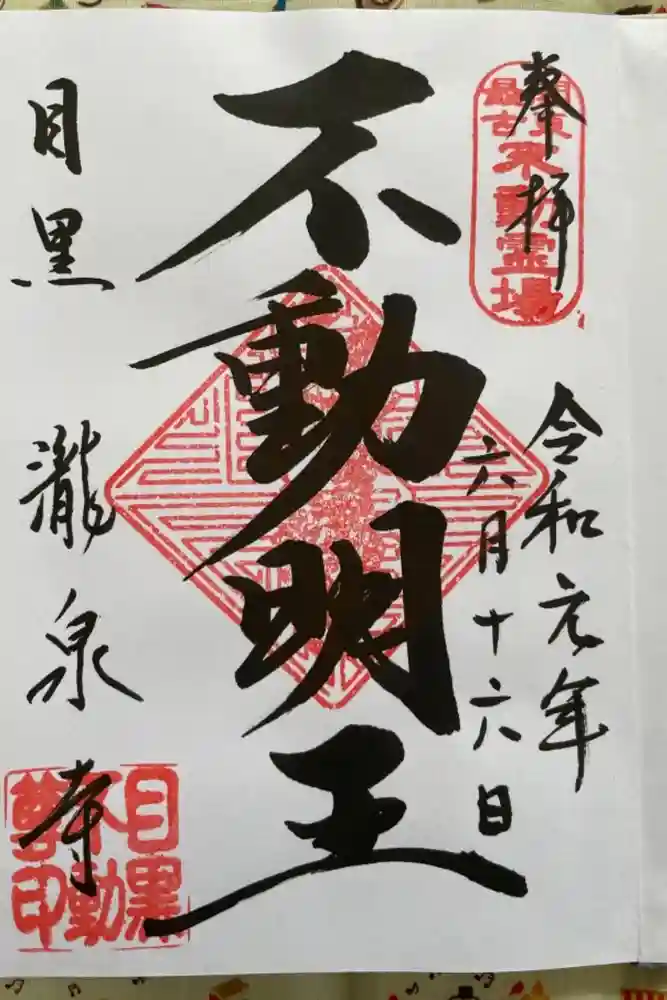 奉拝
関東最古不動霊場
令和元年
六月十六日
不動明王
目黒 瀧泉寺
目黒
不動